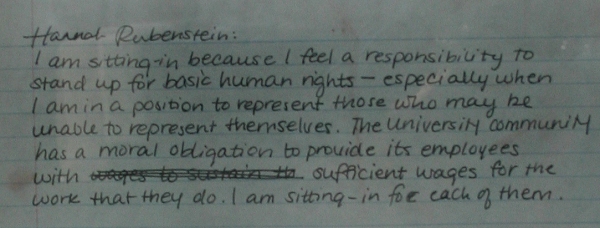 Hannah Rubenstein:
I am sitting-in because I feel a responsibility to
stand up for basic human rights - especially when
I am in a position to represent those who may be
unable to represent themselves. The University community
has a moral obligation to provide its employees
with wages to sustain th. sufficient wages for the
work that they do. I am sitting-in for each of them.